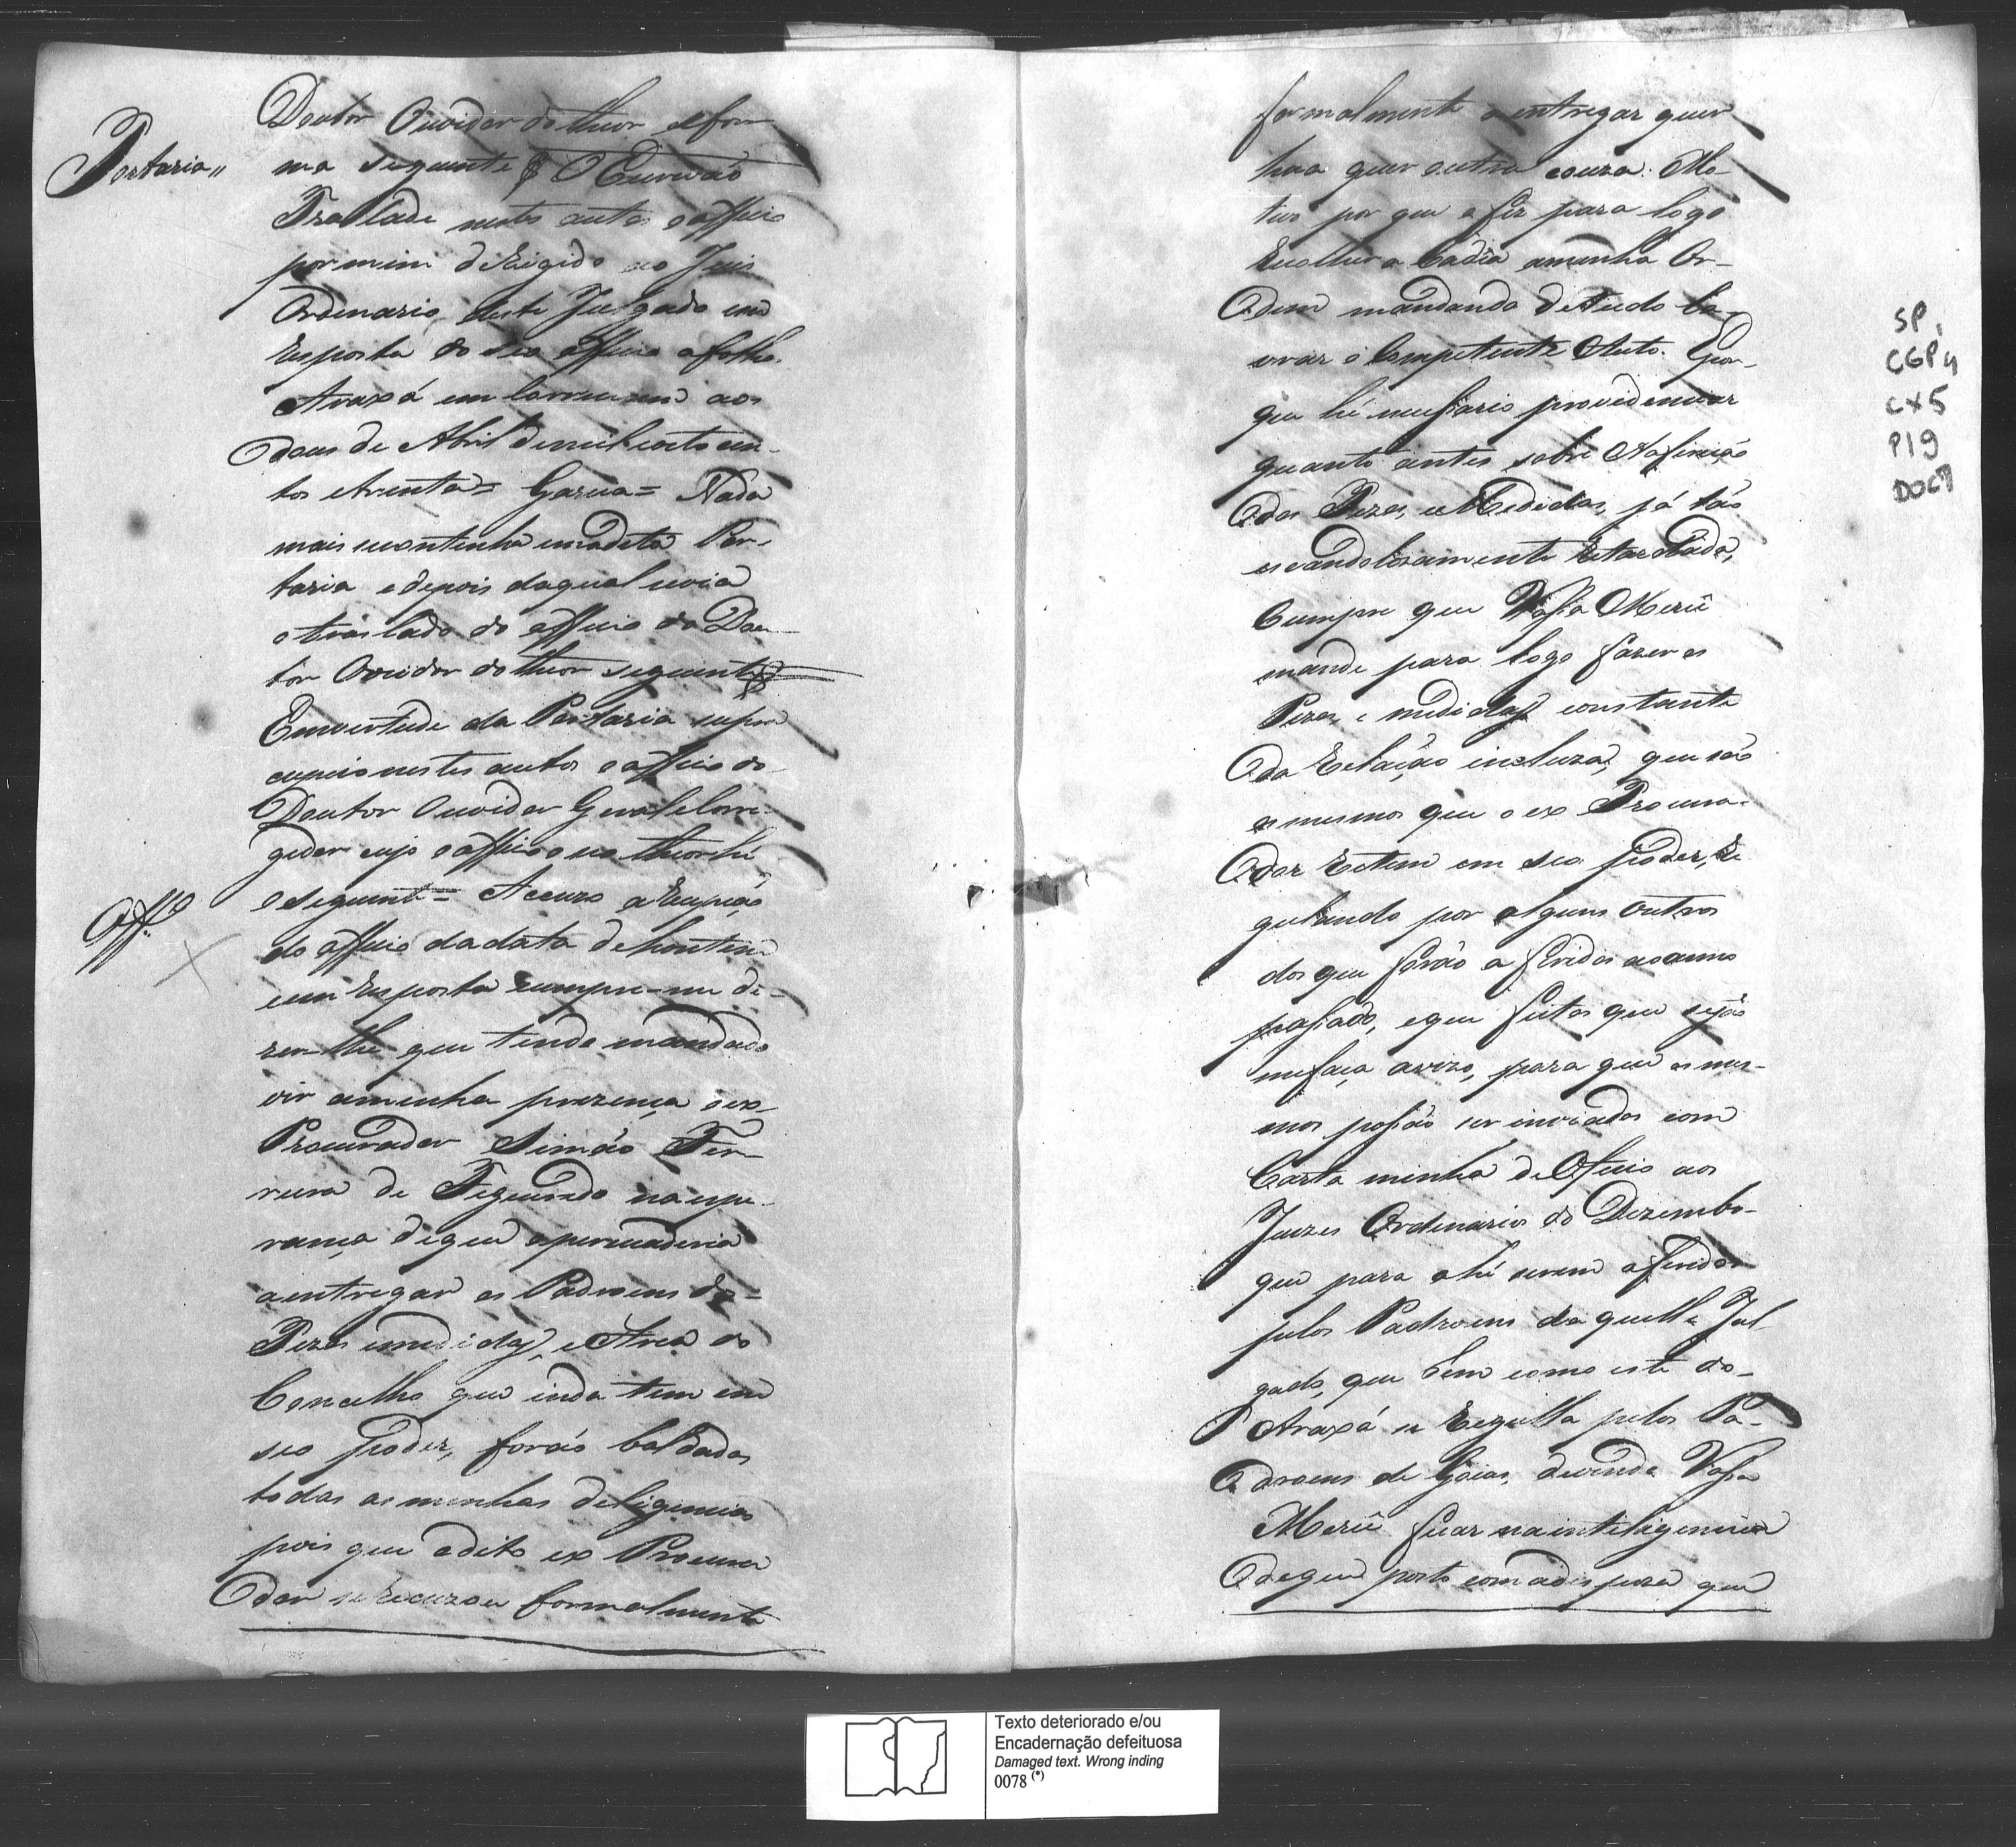 Doutor Ouvidor do theor e for
Portaria" ma seguinte O Escrivão
Traslade nestes autos o officio
por mim derigido ao Juis
Ordenario deste Julgado em
resposta do seo officio a folha.
Araxá em Correicam aos
dous de Abril de mil oito cen-
tos etrenta = Garcia = Nada
mais secontenha emadeta Por-
taria e depois daqual sevia
o traslado do officio do Dou-
tor Ouvidor do theor seguinte
Emvertude da Portaria supra
copeio nestes autos o officio do
Doutor Ouvidor Geral e Corre-
gedor cujo officio e seo theor hé
Off.º o seguinte = Accuzo a recepção
do officio da data de hontem
eem resposta cumpre-me di-
zer lhe que tendo mandado
vir aminha prezença o ex
Procurador Simão Fer-
reira de Figueiredo na espe-
rança de que opersuaderia
a entregar os Padroens de
Pezos e medidas, e Arca do
Concelho que inda tem em
seo poder, forão baldadas
todas as minhas deligencias
pois que o dito ex Procura
dor se recuzou formalmente
formalmente a entregar quer
huа quer outra couza. Mo-
tivo por que o fiz para logo
recolher a Cadia aminha Or-
dem mandando de tudo la-
vrar o Competente Auto. E por-
que hé nessario providenciar
quanto antes sobre Aferição
dos Pezos, e Medidas, já tão
escandolozamente retardada,
Cumpre que Vossa Mercê
mande para logo fazer os
Pezos e medidas constante
da relação incluza, que são
os mesmos que o ex Procura-
dor retem em seo poder, re
gulando por alguns outros
dos que forão a feridos ao anno
passado, e que feitos que sejão
mefaça avizo, para que os mes-
mos possão ser inviados com
Carta minha de Oficio aos
Juizes Ordenarios do Dezembo-
que para ahi serem aferidos
pelos Padroens da quelle Jul
gado, que bem como este do
Araxá se regulla pelos Pa-
droens de Goias, devendo Vossa
Mercê ficar na inteligencia
de que posto com a despeza que
SP,
CGP4
CX5
P19
DOC1
Texto deteriorado e/ou
Encadernação defeituosa
Damaged text. Wrong inding
0078 (*)